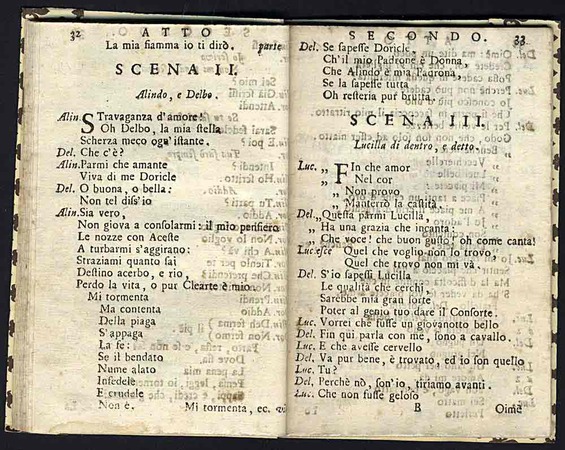 32 ATTO
La mia fiamma io ti dirò. parte
SCENA II.
Alindo, e Delbo.
Alin. STravaganza d'amore!
Oh Delbo, la mia stella
Scherza meco ogn'istante.
Del. Che c'è?
Alin. Parmi che amante
Viva di me Doricle
Del. O buona, o bella:
Non tel diss'io
Alin. Sia vero,
Non giova a consolarmi: il mio pensiero
Le nozze con Aceste
A turbarmi s'aggirano:
Straziami quanto sai
Destino acerbo, e rio,
Perdo la vita, o pur Clearte è mio.
Mi tormenta
Ma contenta
Della piaga
S'appaga
La fe:
Se il bendato
Nume alato
Infedele
E crudele
Non è. Mi tormenta, ec.
SECONDO. 33
Del. Se sapesse Doricle
Ch'il mio Padrone è Donna,
Che Alindo è mia Padrona,
Se la sapesse tutta
Oh resteria pur brutta.
SCENA III.
Lucilla di dentro, e detto.
Luc. „ FIn che amor
„ Nel cor
„ Non provo
„ Manterrò la castità.
Del. „ Questa parmi Lucilla,
„ Ha una grazia che incanta,
„ Che voce! che buon gusto! oh come canta!
Luc. esce Quel che voglio non lo trovo,
Quel che trovo non mi và.
Del. S'io sapessi Lucilla
Le qualità che cerchi,
Sarebbe mia gran sorte
Poter al genio tuo dare il Consorte.
Luc. Vorrei che fusse un giovanotto bello
Del. Fin qui parla con me, sono a cavallo.
Luc. E che avesse cervello.
Del. Va pur bene, è trovato, ed io son quello
Luc. Tu?
Del. Perchè nò, son'io, tiriamo avanti.
Luc. Che non fusse geloso
B Oimè